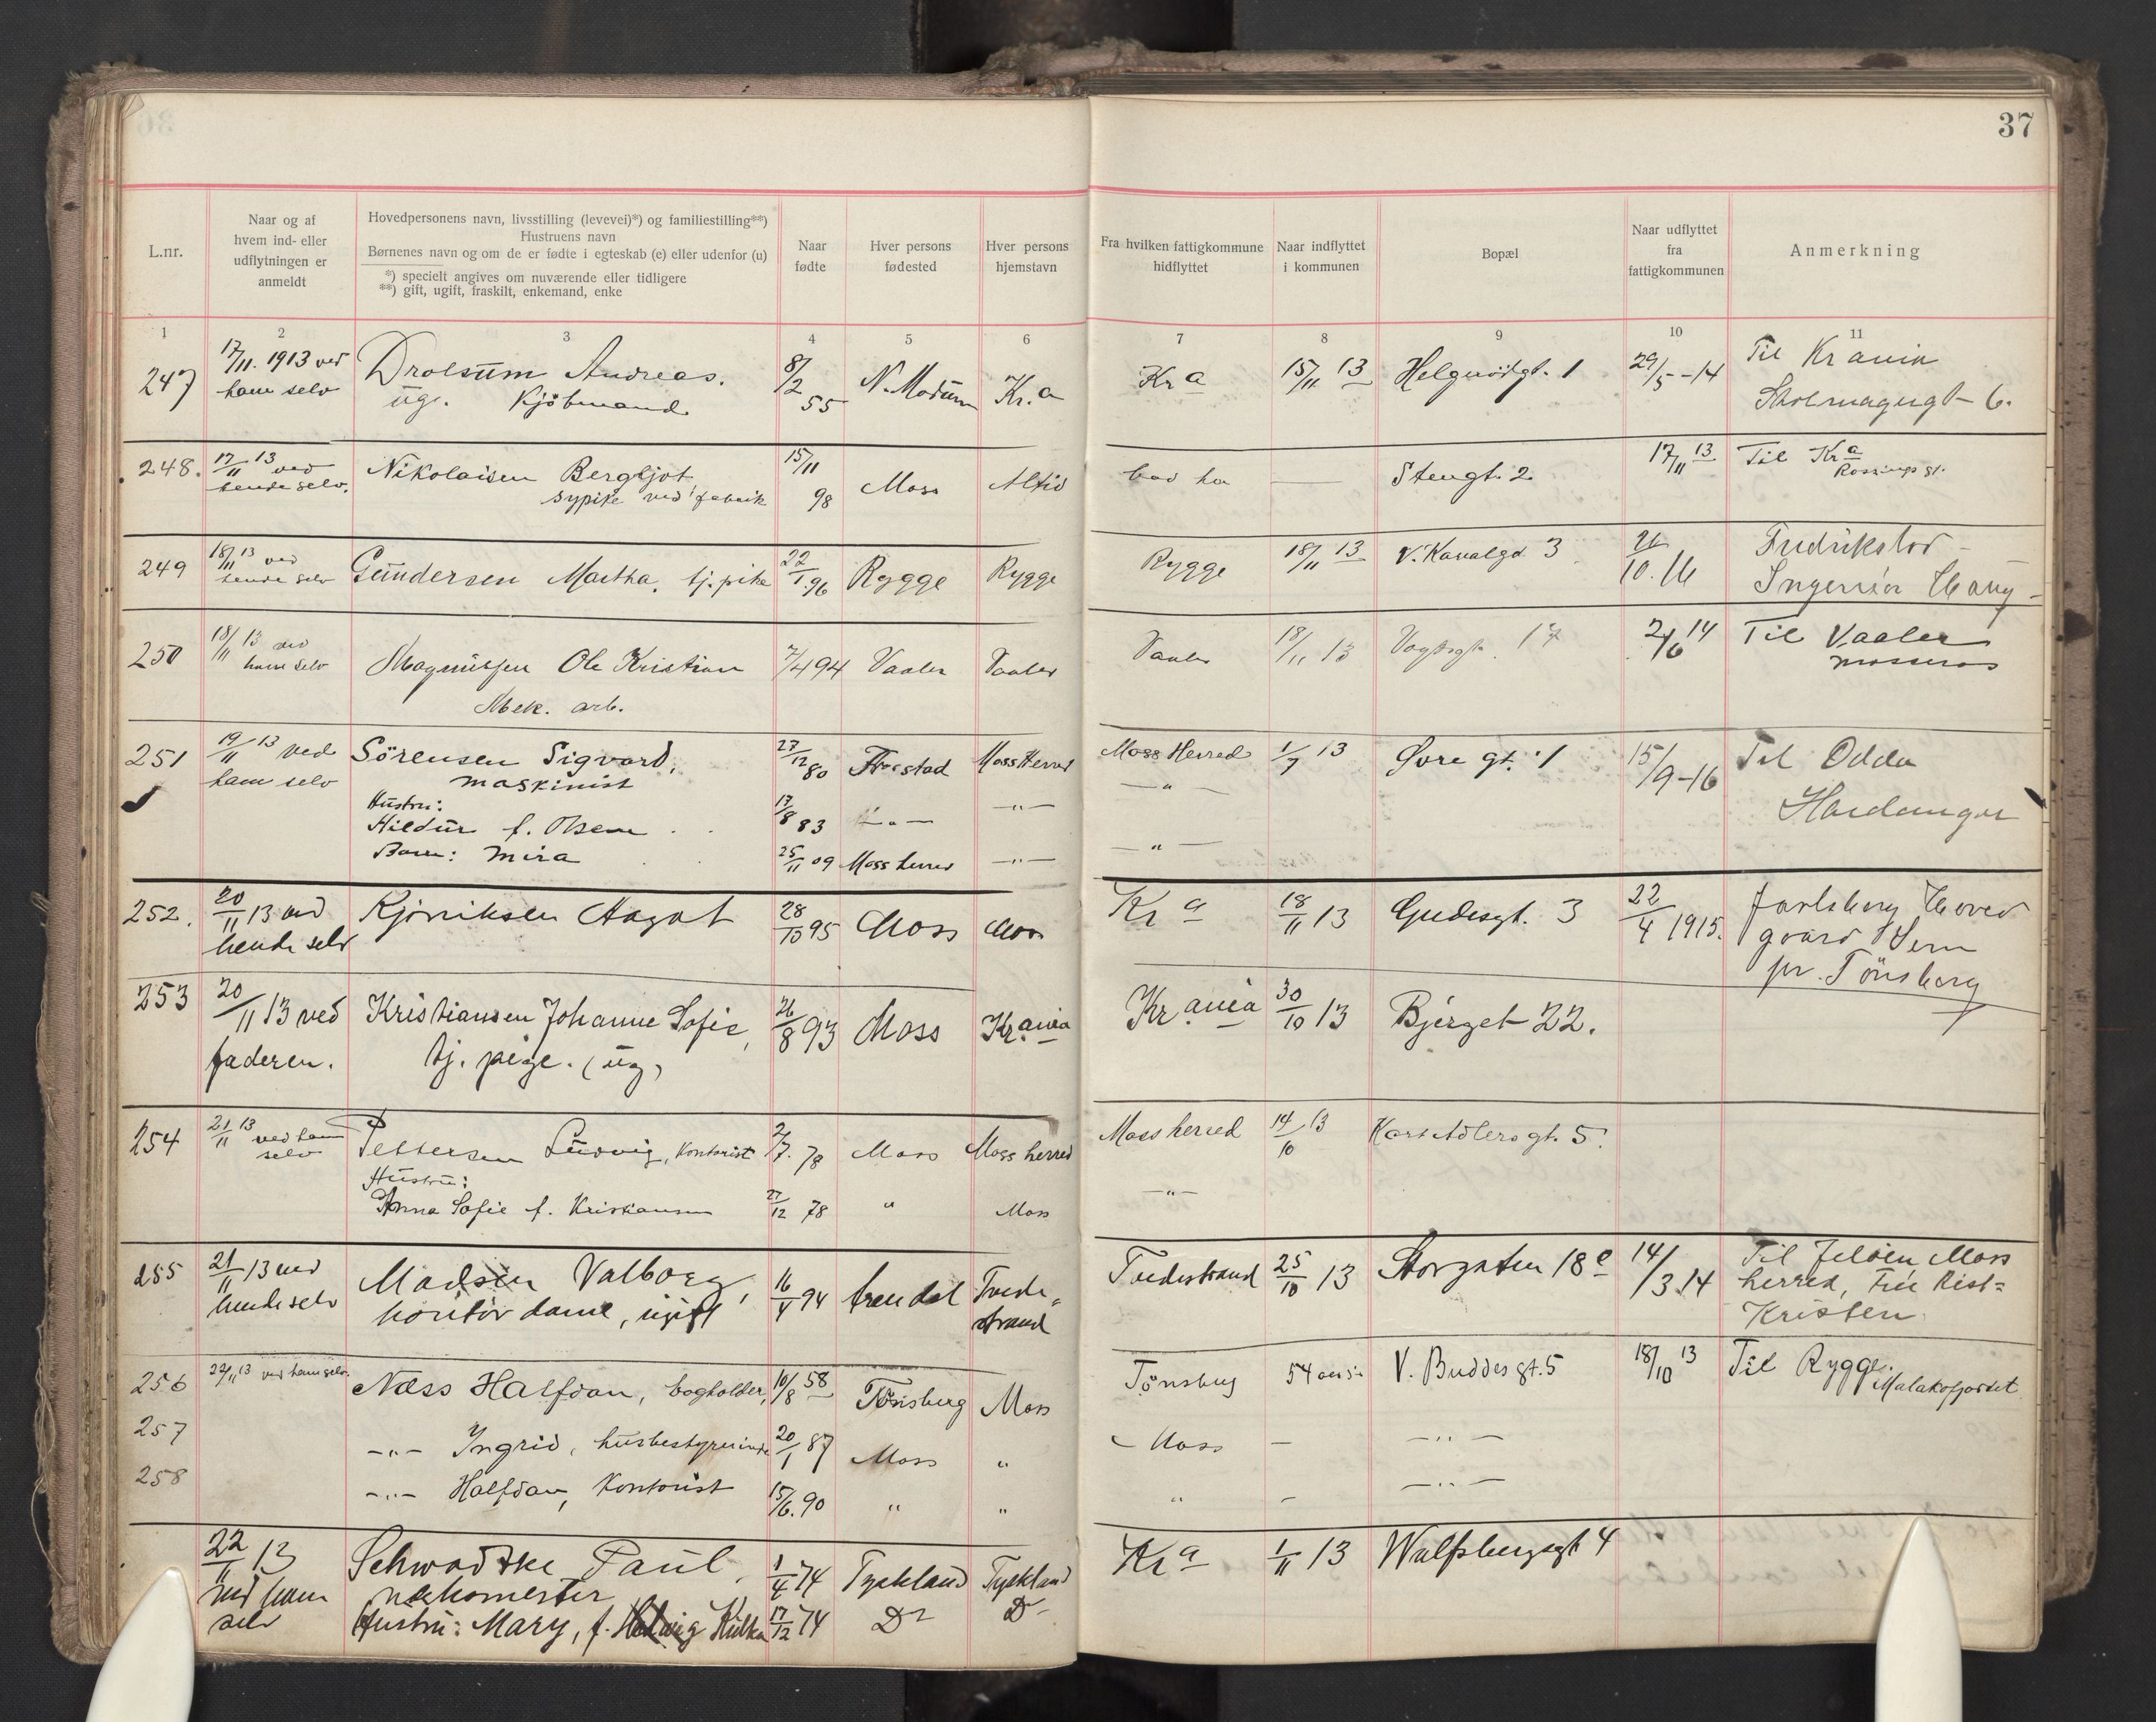 37
L.nr.
Naar og af
hvem ind- eller
udflytningen er
anmeldt
Hovedpersonens navn, livsstilling (levevei)*) og familiestilling**)
Hustruens navn
Børnenes navn og om de er fødte i egteskab (e) eller udenfor (u)
*) specielt angives om nuværende eller tidligere
**) gift, ugift, fraskilt, enkemand, enke
Naar
fødte
Hver persons
fødested
Hver persons
hjemstavn
Fra hvilken fattigkommune
hidflyttet
Naar indflyttet
i kommunen
Bopæl
Naar udflyttet
fra
fattigkommunen
Anmerkning
1 2 3 4 5 6 7 8 9 10 11
247 17/11. 1913 ved Drolsum Andreas. 8/2 55 N. Modum Kr.a Kra 15/11 13 1 29/5-14 Til Krania
ham selv ug. Kjöbmand 6.
248. 17/11 13 ved Nikolaisen Bergljot 15/11 98 Moss Altid Stengt. 2 17/11 13 Til Kra
hende selv. sypike ved fabrik
249 18/11 13 ved Gundersen Martha. tj. pike 22/1.96 Rygge Rygge Rygge 18/11 13 3 10.16 Fredrikstad
hende selv Ingeniör
250 18/11 13 ved Magnussen Ole Kristian 7/4 94 Vaaler Vaaler Vaaler 18/11 13 Vogtsgt. 17 2/6 14 Til Vaaler
ham selv Mek. arb.
251 19/11 13 ved Sörensen Sigvard, 27/12 80 Frstad Moss Herred Moss Herred 1/7 13 Øvre gt. 1 15/9-16 Til Odda
ham selv maskinist —"— Hardanger
Hustru:
Hildur f. Olsen 17/8 83 —"— —"—
Barn: Mira 25/11 09 Moss herred —"— —"—
252. 20/11 13 ved Agot 28/10 95 Moss Moss Kra 18/11 13 Gudesgt. 3 22/4 1915. Jarlsberg Hoved
hende selv gaard Sem
pr. Tönsberg
253 20/11 13 ved Kristiansen Johanne Sofie, 26/8 93 Moss Kr.ania Krania 30/10 13 Bjerget 22.
faderen. tj. pige. (ug)
254 21/11 13 ved ham Pettersen Ludvig, Kontorist 2/7. 78 Moss Moss herred Moss herred 14/10 13 Karl Adlers gt. 5.
selv Hustru:
Anna Sofie f. Kristiansen 27/12 78 " Moss —"—
255 21/11 13 ved Madsen Valborg, 16/4 94 Arendal Tvede- Tvedestrand 25/10 13 Storgaten 18e 14/3 14 Til Jelöen Moss
hende selv kontor dame, ugift strand herred, Fru
Kristen
256 22/11 13 ved ham selv. Næss Halfdan, bogholder, 10/8 58 Tönsberg Moss Tönsberg 54 V. Buddes gt. 5 18/10 13 Til Rygge.
257 —"— Ingrid, husbestyrerinde 20/1 87 Moss " Moss — —"—
258 —"— Halfdan, Kontorist 15/6. 90 " " " — —"—
22/11 13 Schwadtke Paul, 1/4 74 Tyskland Tyskland Kra 1/11 13 Wulfsbergsgt 4
ved ham
selv Hustru: Mary, f. 17/12 74 Do Do